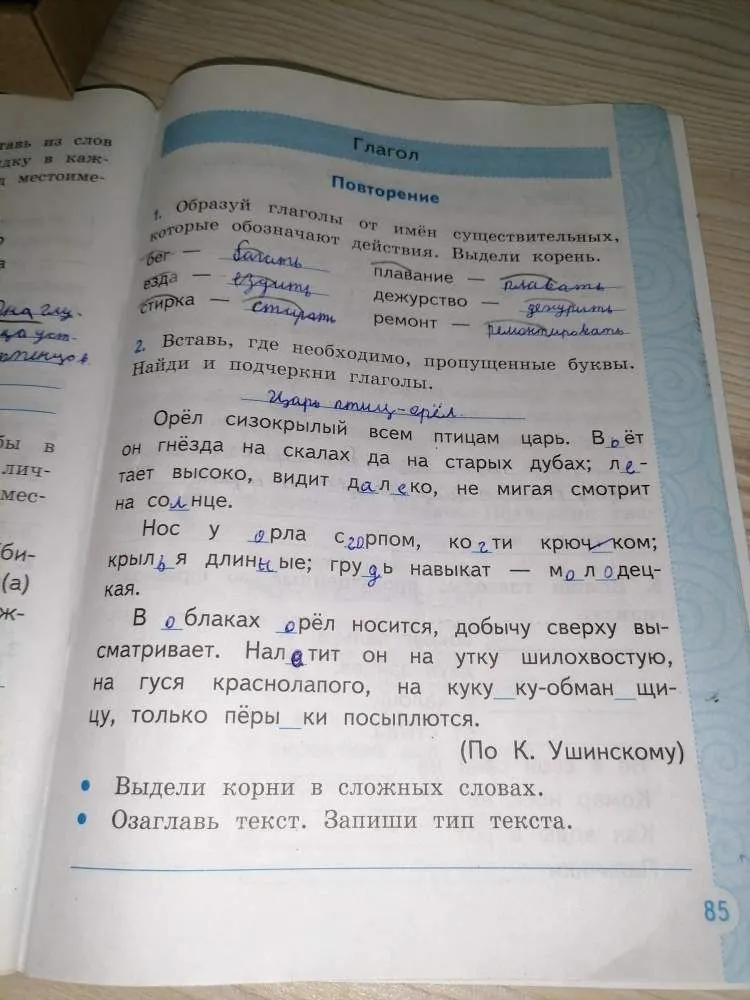 тавь из слов
дку в каж-
д местоиме-
на глу-
бы в
лич-
мес-
би-
(а)
ж-
Глагол
Повторение
1. Образуй глаголы от имён существительных,
которые обозначают действия. Выдели корень.
бег — багать плавание — плавать
езда — ездить дежурство — дежурить
стирка — стирать ремонт — ремонтировать
2. Вставь, где необходимо, пропущенные буквы.
Найди и подчеркни глаголы.
Царь птиц-орёл
Орёл сизокрылый всем птицам царь. Вьёт
он гнёзда на скалах да на старых дубах; ле-
тает высоко, видит далеко, не мигая смотрит
на солнце.
Нос у орла сгорпом, когти крюч_ком;
крылья длинные; грудь навыкат — молодец-
кая.
В облаках орёл носится, добычу сверху вы-
сматривает. Налетит он на утку шилохвостую,
на гуся краснолапого, на куку_ку-обман_щи-
цу, только пёры_ки посыплются.
(По К. Ушинскому)
• Выдели корни в сложных словах.
• Озаглавь текст. Запиши тип текста.
85